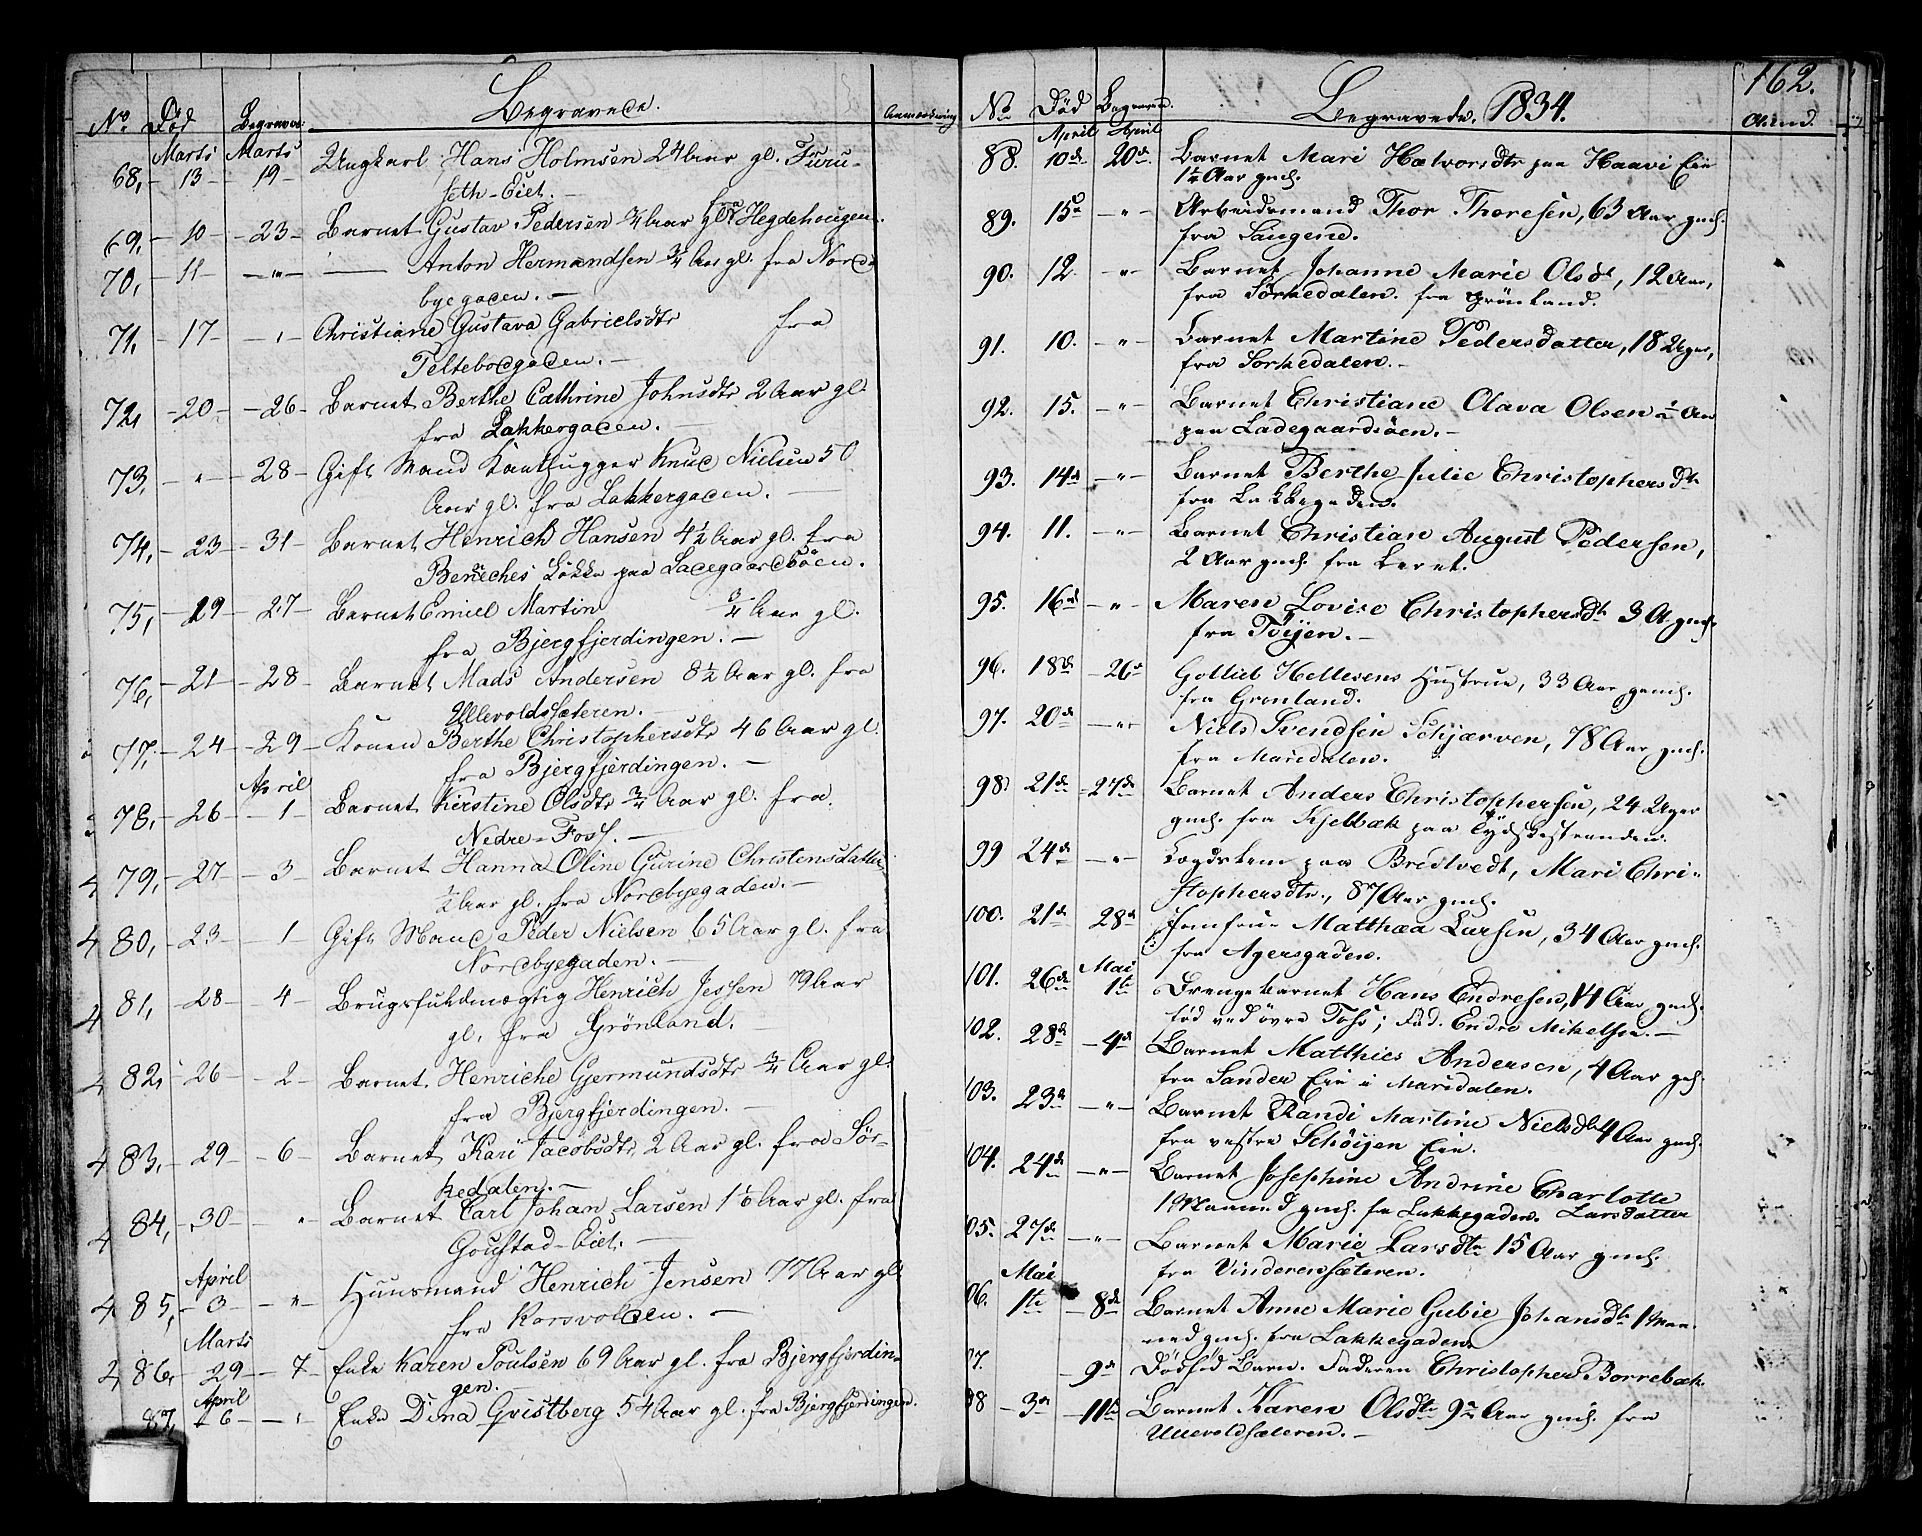 No Död Begraven Begravede. Anmærkning
Marts Marts
68, 13 19 Ungkarl Hans Holmsen 24 Aar gl. Furu-
seth-Eiet.
69, 10 23 Barnet Gustav Pedersen Aar gl. fra Hegdehougen.
70, 11 " Anton Hermandsen 3/4 Aar gl. fra Nord-
byegaden.
71, 17 " Christiane Gustava Gabrielsdtr fra
Telteborgaden.
72, 20 26 Barnet Berthe Cathrine Johnsdtr 2 Aar gl.
fra Lakkergaden.
73, " 28 Gift Mand Knud Nielsen 50
Aar gl. fra Lakkergaden.
74, 23 31 Barnet Henrich Hansen 4½ Aar gl. fra
Beneches Løkke paa Ladegaardsöen.
75, 19 27 Barnet Emiel Martin 3/4 Aar gl.
fra Bjergfjerdingen.
76, 21 28 Barnet Mads Andersen 8½ Aar gl. fra
Ullevoldsæteren.
77, 24 29 Konen Berthe Christophersdtr 46 Aar gl.
fra Bjergfjerdingen.
April
78, 26 1 Barnet Kirstine Olsdtr 3/4 Aar gl. fra
Nedre-Foss.
79, 27 3 Barnet Hanna Oline Gurine Christensdatter
½ Aar gl. fra Nordbyegaden.
4 80, 23 1 Gift Mand Peder Nielsen 65 Aar gl. fra
Nordbyegaden.
4 81, 28 4 Brugsfuldmægtig Henrich Jessen 79 Aar
gl. fra Grönland.
4 82, 26 2 Barnet Henriche Gjermundsdtr 3/4 Aar gl.
fra Bjergfjerdingen.
4 83, 29 6 Barnet Kari Jacobsdtr 2 Aar gl. fra Sör-
kedalen.
4 84, 30 " Barnet Carl Johan Larsen Aar gl. fra
Goustad-Eiet.
April
4 85, 3 " Huusmand Henrich Jensen 77 Aar gl.
fra Korsvolden.
Marts
86, 29 7 Enke Karen Poulsen 69 Aar gl. fra Bjergfjerdin-
gen.
April
87, 6 " Enke Dina Qvistberg 54 Aar gl. fra Bjergfjerdingen.
162.
No Död Begraven Begravede. 1834.
April April
88. 10de 20de Barnet Mari Halvorsdtr paa Haavi Eie
1¼ Aar gml.
89. 15de " Arbeidsmand Thor Thoresen, 63 Aar gml.
fra Saugene.
90. 12. " Barnet Johanne Marie Olsdtr, 12 Aar,
fra Sörkedalen. fra Grönland.
91. 10. " Barnet Martine Pedersdatter, 18 Uger,
fra Sorkedalen.
92. 15. " Barnet Christiane Olava Olsen Aar
paa Ladegaardsöen.
93. 14de " Barnet Berthe Julie Christophersdtr
fra Lakkegaden.
94. 11. " Barnet Christian August Pedersen,
2 Aar gml. fra Leret.
95. 16de " Maren Lovise Christophersdtr 3 A gml.
fra Töijen.
96. 18de 26de Gotlieb Hellesens Hustrue, 33 Aar gml.
fra Grønland.
97. 20de " Niels Svendsen Schjærven, 78 Aar gml.
fra Maridalen.
98. 21de 27de Barnet Anders Christophersen, 24 Uger
gml. fra Kjelbæk paa Tydskestranden.
99 24de " Lægdslem paa Bredtvedt, Mari Chri-
stophersdtr., 87 Aar gml.
100. 21de 28de Jomfrue Matthea Larsen, 34 Aar gml.
fra Agersgaden.
Mai
101. 26de 1te Drengebarnet Hans Endresen, 14 Aar gml.
född ved övre Foss; Fad. Endre Mikelsen.
102. 28de 4de Barnet Matthies Andersen, 4 Aar gml.
fra Sander Eie i Maridalen.
103. 23de " Barnet Randi Martine Nielsdtr 4 Aar gml.
fra vestre Schöijen Eie.
104. 24de " Barnet Josephine Andrine Charlotte
1 Maaned gml. fra Lakkegaden. Larsdatter
05. 27de " Barnet Marie Larsdtr 15 Aar gml.
fra Vinderensæteren.
Mai
06. 1te 8de Barnet Anne Marie Gubie Johansdtr 1 Maa-
ned gml. fra Lakkegaden
07. 9de Dödföd Barn. Faderen Christopher Borrebæk.
08 3de 11te Barnet Karen Olsdtr Aar gml. fra
Ullevoldsæteren.